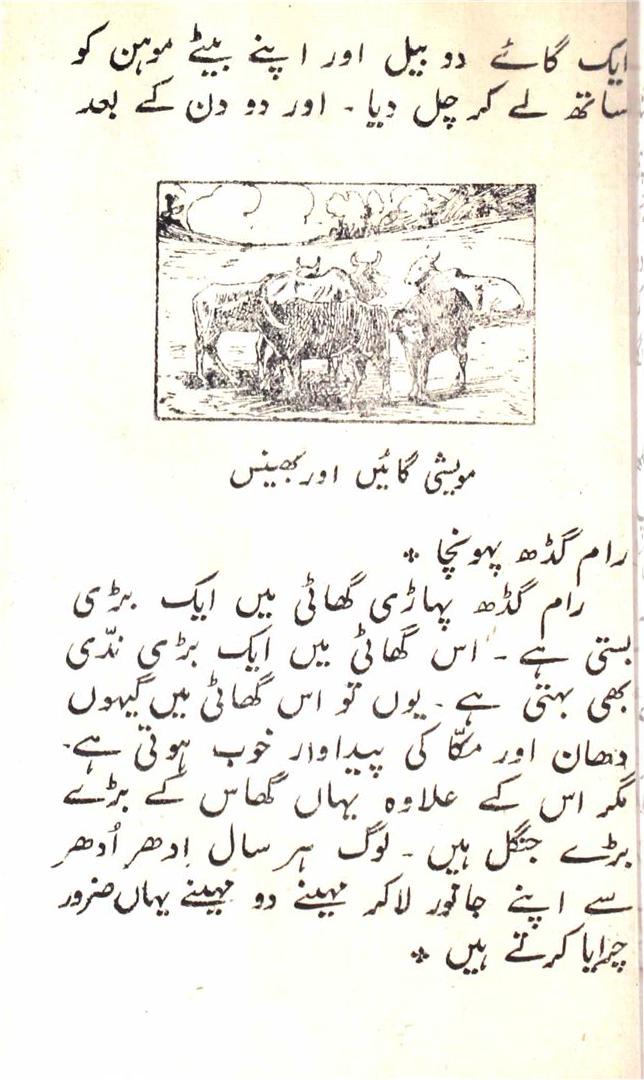 ایک گائے دو بیل اور اپنے بیٹے موہن کو
ساتھ لے کر چل دیا۔ اور دو دن کے بعد
مویشی گائیں اور بھینس
رام گڈھ پہونچا *
رام گڈھ پہاڑی گھاٹی میں ایک بڑی
بستی ہے۔ اس گھاٹی میں ایک بڑی ندّی
بھی بہتی ہے۔ یوں تو اس گھاٹی میں گیہوں
دھان اور مکّا کی پیداوار خوب ہوتی ہے۔
مگر اس کے علاوہ یہاں گھاس کے بڑے
بڑے جنگل ہیں۔ لوگ ہر سال اِدھر اُدھر
سے اپنے جانور لاکر مہینے دو مہینے یہاں ضرور
چرایا کرتے ہیں *